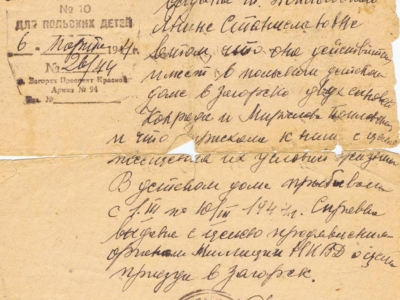 № 10
ДЛЯ ПОЛЬСКИХ ДЕТЕЙ
6 Марта 1944 г.
№ 26/44
г. Загорск Проспект Красной
Армии № 94
Янине Станиславовне
в том, что она действительно
имеет в польском детском
доме в Загорске двух сыновей
Конрада и Мирослава
и что приезжала к ним с целью
посещения их условий жизни
В детском доме пребывала
с 1.III по 10/III 1944 г. Справка
выдана с целью предъявления
органам Милиции НКВД о цели
приезда в Загорск.